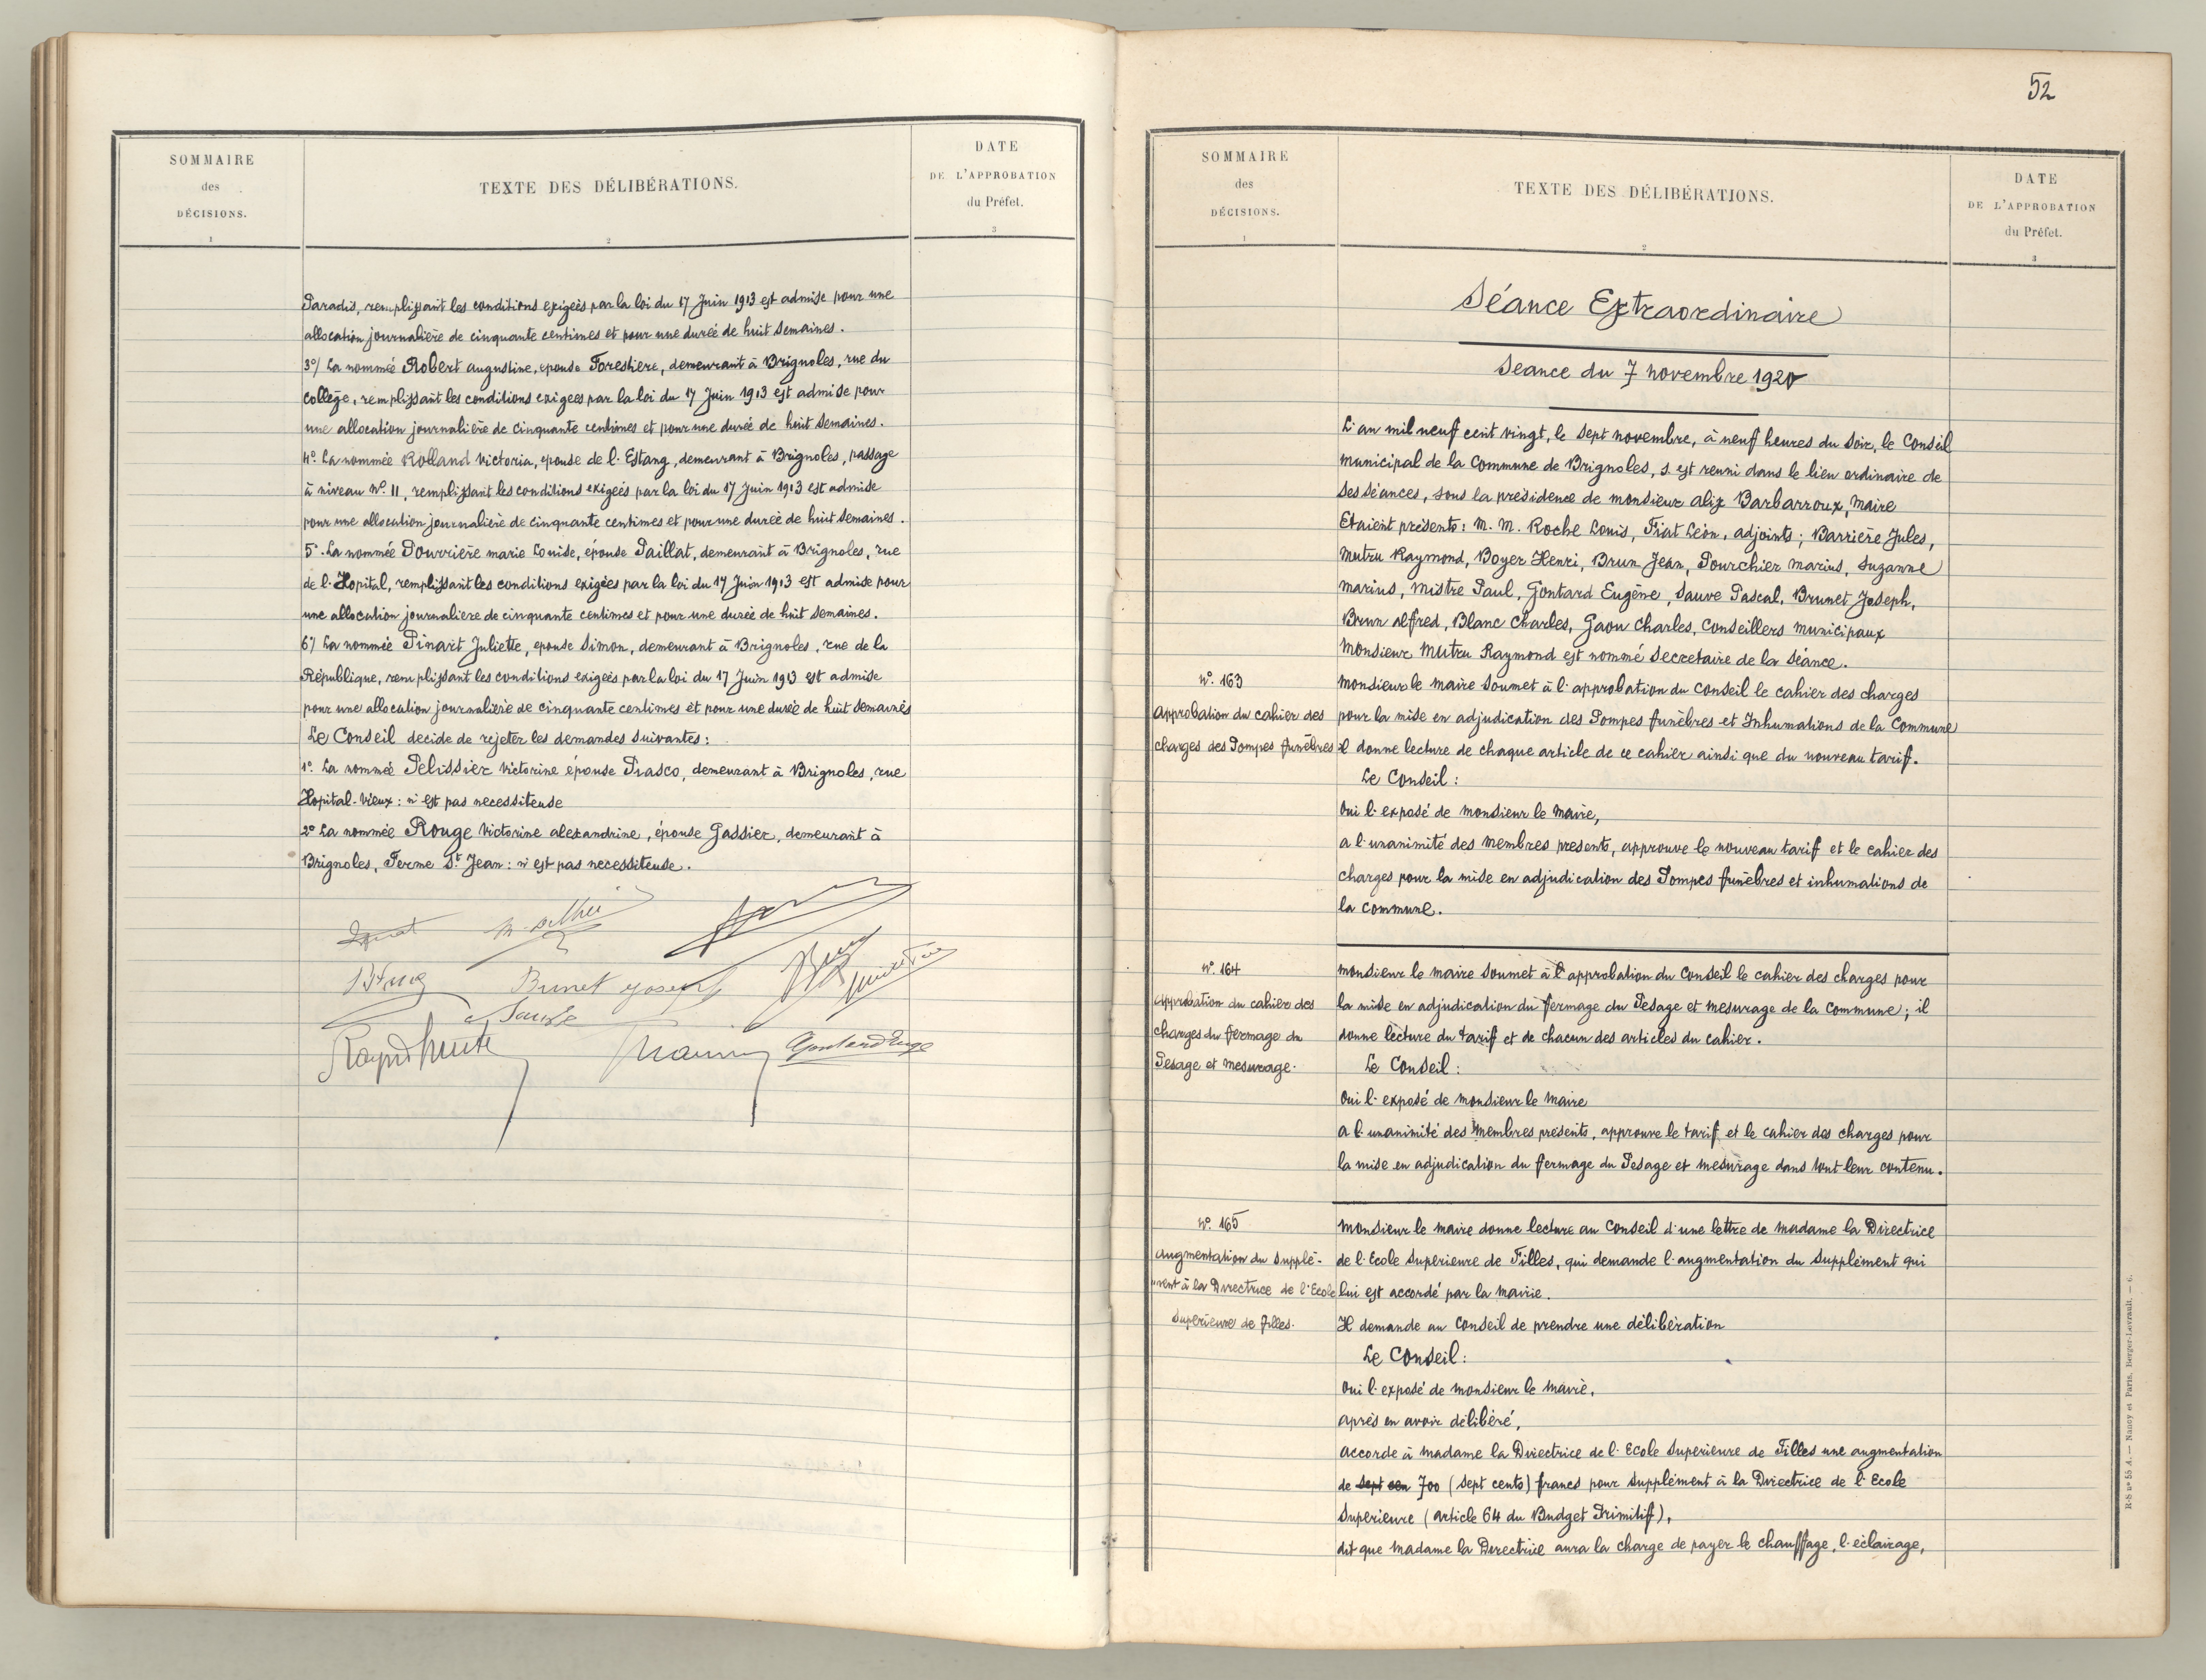 SOMMAIRE
des
DÉCISIONS.
1
TEXTE DES DÉLIBÉRATIONS.
2
DATE
DE L'APPROBATION
du Préfet.
3
Paradis, remplissant les conditions exigées par la loi du 17 Juin 1913 est admise pour une
allocation journalière de cinquante centimes et pour une durée de huit semaines.
3°/ La nommée Robert Augustine, épouse Forestière, demeurant à Brignoles, rue du
Collège, remplissant les conditions exigées par la loi du 17 Juin 1913 est admise pour
une allocation journalière de cinquante centimes et pour une durée de huit semaines.
4° La nommée Rolland Victoria, épouse de l'Estang, demeurant à Brignoles, passage
à niveau N° 11, remplissant les conditions exigées par la loi du 17 Juin 1913 est admise
pour une allocation journalière de cinquante centimes et pour une durée de huit semaines.
5° La nommée Pourrière Marie Louise, épouse Paillat, demeurant à Brignoles, rue
de l'Hopital, remplissant les conditions exigées par la loi du 17 Juin 1913 est admise pour
une allocation journalière de cinquante centimes et pour une durée de huit semaines.
6°/ La nommée Pinart Juliette, épouse Simon, demeurant à Brignoles, rue de la
République, remplissant les conditions exigées par la loi du 17 Juin 1913 est admise
pour une allocation journalière de cinquante centimes et pour une durée de huit semaines
Le Conseil decide de rejeter les demandes suivantes:
1° La nommée Pelissier Victorine épouse Piasco, demeurant à Brignoles, rue
Hopital-Vieux: n'est pas necessiteuse
2° La nommée Rouge Victorine alexandrine, épouse Gassier, demeurant à
Brignoles, Ferme St Jean: n'est pas necessiteuse.
Brunet Joseph
52
SOMMAIRE
des
DÉCISIONS.
1
TEXTE DES DÉLIBÉRATIONS.
2
DATE
DE L'APPROBATION
du Préfet.
3
Séance Extraordinaire
Seance du 7 novembre 1920
L'an mil neuf cent vingt, le sept novembre, à neuf heures du soir, le Conseil
municipal de la Commune de Brignoles, s'est reuni dans le lieu ordinaire de
ses séances, sous la présidence de monsieur alix Barbarroux, Maire
Etaient présents: M. M. Roche Louis, Fiat Léon, adjoints; Barrière Jules,
Mutru Raymond, Boyer Henri, Brun Jean, Pourchier Marius, Suzanne
Marius, Mistre Paul, Gontard Eugène, Sauve Pascal, Brunet Joseph,
Brun alfred, Blanc Charles, Gaou Charles, Conseillers municipaux
Monsieur Mutru Raymond est nommé secretaire de la séance.
N° 163
approbation du cahier des
charges des Pompes funèbres
Monsieur le maire soumet à l'approbation du conseil le cahier des charges
pour la mise en adjudication des Pompes funèbres et Inhumations de la Commune
il donne lecture de chaque article de ce cahier ainsi que du nouveau tarif.
Le Conseil:
Oui l'exposé de monsieur le Maire,
a l'unanimité des membres présents, approuve le nouveau tarif et le cahier des
charges pour la mise en adjudication des Pompes funèbres et inhumations de
la commune.
N° 164
approbation du cahier des
charges du fermage du
Pesage et mesurage.
monsieur le maire soumet à l'approbation du Conseil le cahier des charges pour
la mise en adjudication du fermage du Pesage et mesurage de la Commune; il
donne lecture du tarif et de chacun des articles du cahier.
Le Conseil:
Oui l'exposé de monsieur le maire
a l'unanimité des membres présents, approuve le tarif et le cahier des charges pour
la mise en adjudication du fermage du Pesage et mesurage dans tout leur contenu.
N° 165
augmentation du supplé-
ment à la Directrice de l'Ecole
Supérieure de filles.
Monsieur le maire donne lecture au Conseil d'une lettre de madame la Directrice
de l'Ecole Superieure de Filles, qui demande l'augmentation du supplément qui
lui est accordé par la mairie.
Il demande au conseil de prendre une délibération
Le Conseil:
Oui l'exposé de monsieur le maire,
après en avoir délibéré,
accorde à madame la Directrice de l'Ecole Superieure de Filles une augmentation
de sept cen 700 (sept cents) francs pour supplément à la Directrice de l'Ecole
Superieure (article 64 du Budget Primitif),
dit que madame la Directrice aura la charge de payer le chauffage, l'éclairage,
R-S n° 55 A. — Nancy et Paris, Berger-Levrault. — 6.